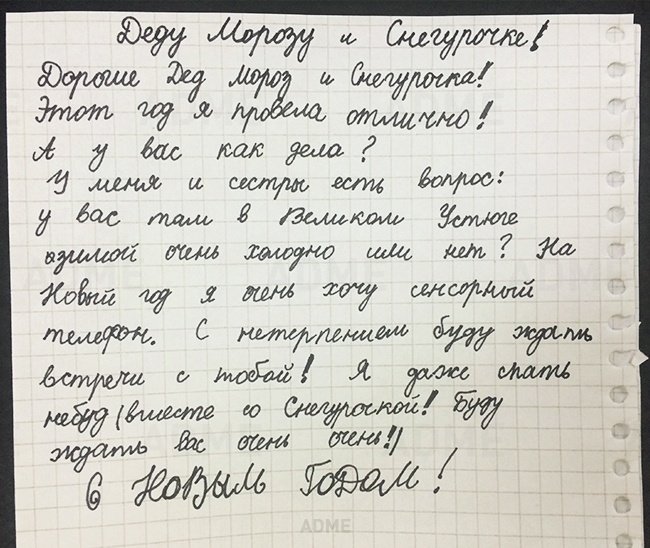 Деду Морозу и Снегурочке!
Дорогие Дед Мороз и Снегурочка!
Этот год я провела отлично!
А у вас как дела?
У меня и сестры есть вопрос:
у вас там в Великом Устюге
озимой очень холодно или нет? На
Новый год я очень хочу сенсорный
телефон. С нетерпением буду ждать
встречи с тобой! Я даже спать
небуд(вместе со Снегурочкой! Буду
ждать вас очень очень!)
С Новыль Годом!
ADME